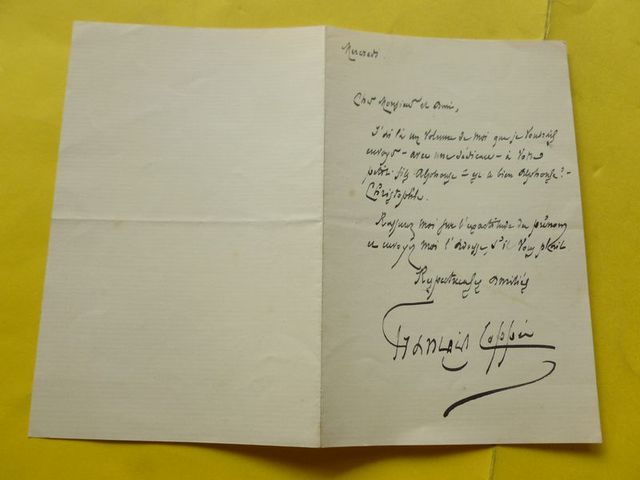 Mercredi
Cher Monsieur et Ami,
J'ai là un volume de moi que je voudrais
envoyer – avec une dédicace – à votre
petit-fils Alphonse – est-ce bien Alphonse? –
Christophle.
Rassurez moi sur l'exactitude du prénom
et envoyez moi l'adresse, s'il vous plaît
Respectueuses amitiés
François Coppée